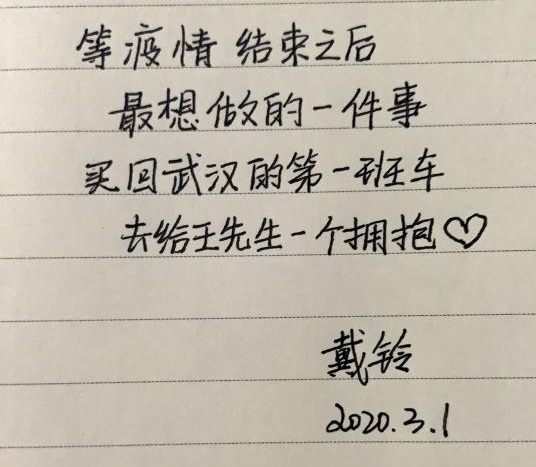 等疫情结束之后
最想做的一件事
买回武汉的第一班车
去给王先生一个拥抱♡
戴铃
2020.3.1